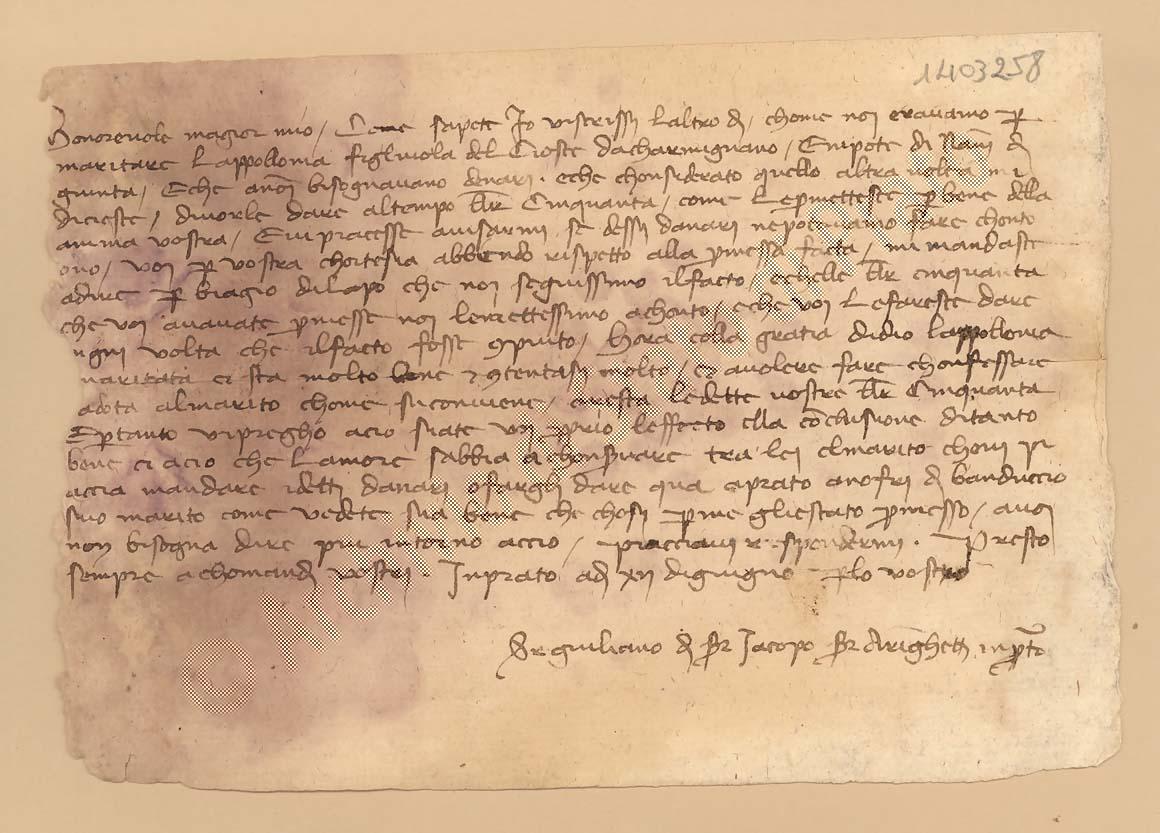 1403258
Honorevole magior mio / Come sapete Io vi scrissi laltro dì chome noi eravamo p
maritare lappollonia figliuola del Cioste dacharmignano / Enipote di Nanni di
giunta / Eche anoi bisognavano denari. eche chonsiderato quello altra volta mi
dicieste / divorle dare altempo lbr Cinquanta / come lepmetteste p bene della
anima vostra / Emipiacesse avisarmi se dessi danari nepotavamo fare chonto
ono / voi p vostra chortesia abbiendo rispetto alla pmessa facta / mi mandaste
adire p biagio dilapo che noi seguissimo ilfacto / echelle lbr cinquanta
che voi avavate pmesse noi lemettessimo achonto / eche voi lefareste dare
ugni volta che ilfacto fosse 9piuto / Hora colla gratia didio lappollonia
maritata ci sta molto bene & 9tentasi molto / et avolere fare chonfessare
adota almarito chome siconviene / cresta ledette vostre lbr Cinquanta
Eptanto vipregho acio siate voi ppuo leffecto ella conclusione ditanto
bene ci acio che lamore sabbia achonsvare tra lei elmarito chemi pi
accia mandare idetti danari ofargli dare qua aprato anofri di banduccio
suo marito come vedete sua bene che chosi pme gliestato pmesso / avoi
non bisogna dire piu intorno accio / piacciavi rispondermi. Presto
sempre achomandi vostri. Inprato adi xii digiugno plo vostro
Ser giuliano di ser Iacopo ser Arrighetti inpto